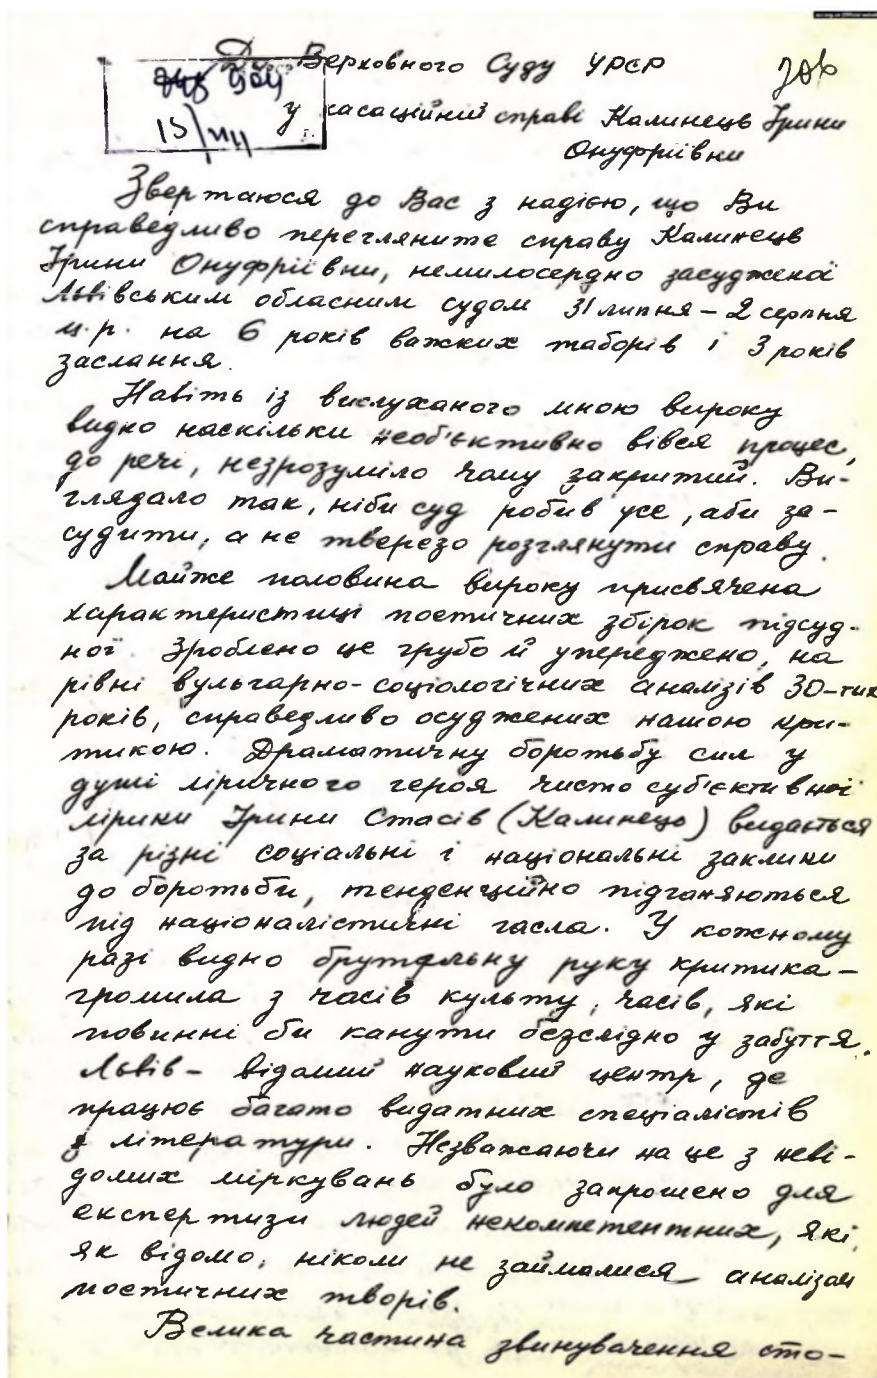 До Верховного Суду УРСР
у касаційній справі Калинець Ірини
Онуфріївни
Звертаюся до Вас з надією, що Ви
справедливо перегляните справу Калинець
Ірини Онуфріївни, немилосердно засудженої
Львівським обласним судом 31 липня – 2 серпня
ц.р. на 6 років важких таборів і 3 років
заслання.
Навіть із вислуханого мною вироку
видно наскільки необ'єктивно вівся процес,
до речі, незрозуміло чому закритий. Ви-
глядало так, ніби суд робив усе, аби за-
судити, а не тверезо розглянути справу.
Майже половина вироку присвячена
характеристиці поетичних збірок підсуд-
ної. Зроблено це грубо й упереджено, на
рівні вульгарно-соціологічних аналізів 30-тих
років, справедливо осуджених нашою кри-
тикою. Драматичну боротьбу сил у
душі ліричного героя чисто суб'єктивної
лірики Ірини Стасів (Калинець) видається
за різні соціальні і національні заклики
до боротьби, тенденційно підганяються
під націоналістичні гасла. У кожному
разі видно брутальну руку критика-
громила з часів культу, часів, які
повинні би канути безслідно у забуття.
Львів – відомий науковий центр, де
працює багато видатних спеціалістів
літератури. Незважаючи на це з неві-
домих міркувань було запрошено для
експертизи людей некомпетентних, які,
як відомо, ніколи не займалися аналізом
поетичних творів.
Велика частина звинувачення сто-